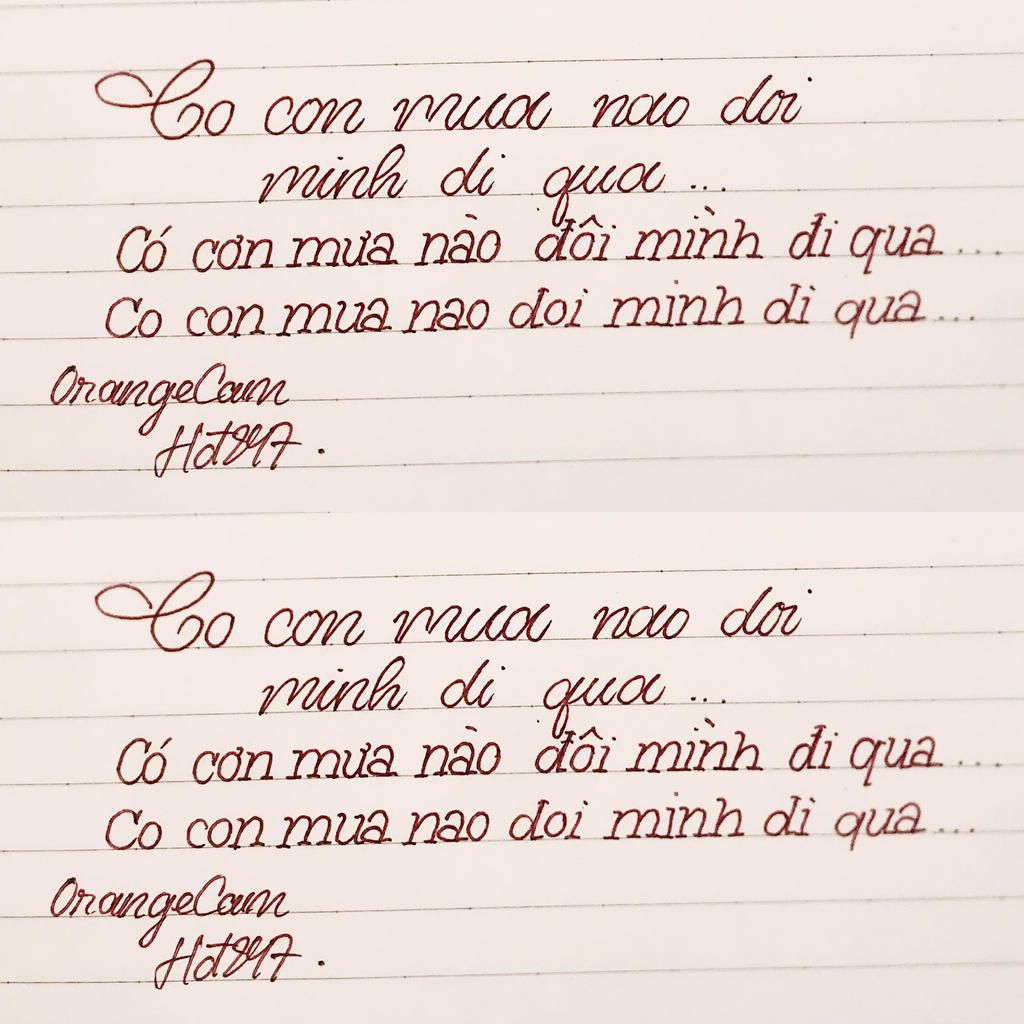 Co con mua nao doi
minh di qua ...
Có cơn mưa nào đôi mình đi qua ...
Co con mua nao doi minh di qua ...
OrangeCam
Co con mua nao doi
minh di qua ...
Có cơn mưa nào đôi mình đi qua ...
Co con mua nao doi minh di qua ...
OrangeCam